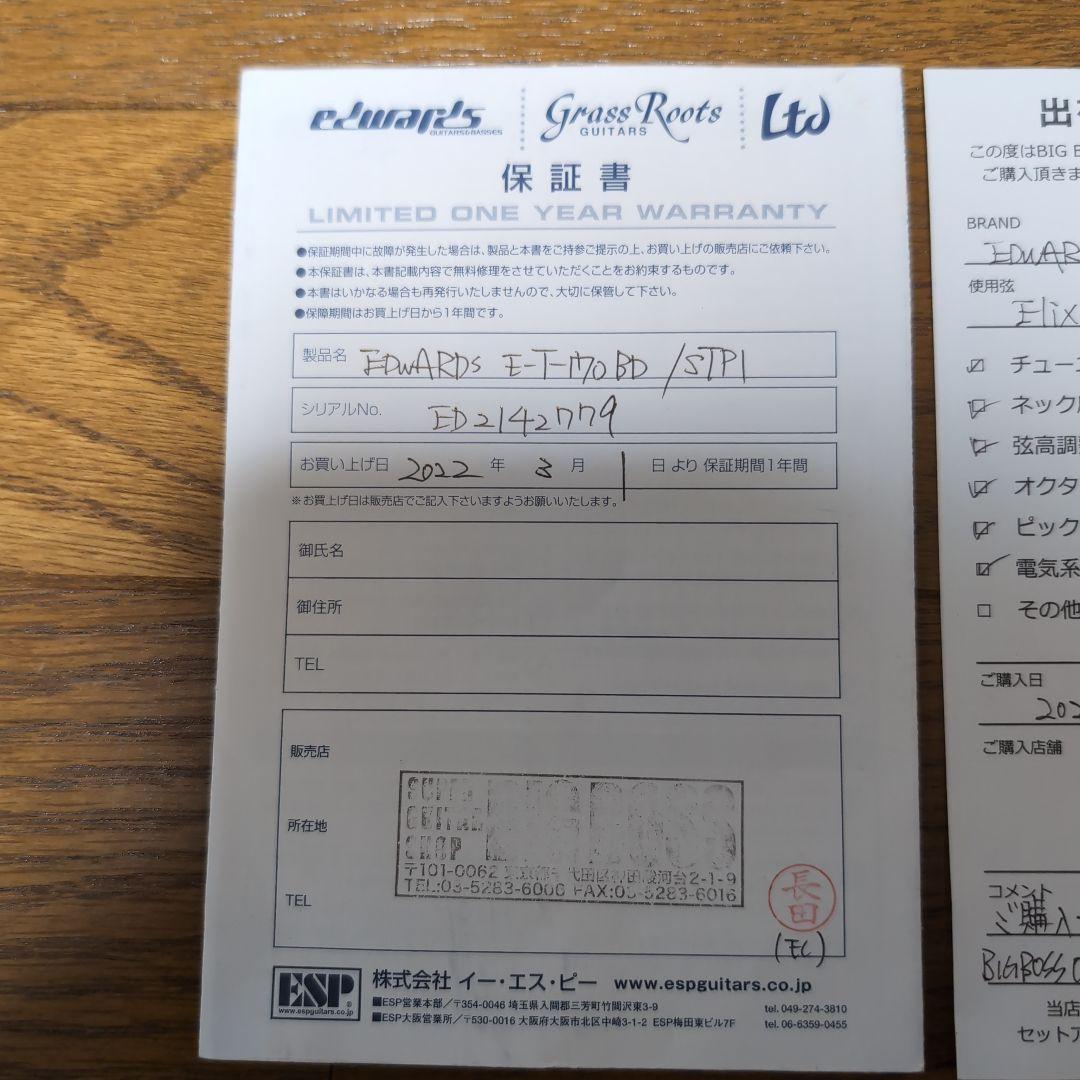 edwards
GUITARS&BASSES
Grass Roots
GUITARS
Ltd
保証書
LIMITED ONE YEAR WARRANTY
●保証期間中に故障が発生した場合は、製品と本書をご持参ご提示の上、お買い上げの販売店にご依頼下さい。
●本保証書は、本書記載内容で無料修理をさせていただくことをお約束するものです。
●本書はいかなる場合も再発行いたしませんので、大切に保管して下さい。
●保障期間はお買上げ日から1年間です。
製品名 EDWARDS E-T-170BD /STPI
シリアルNo. ED2142779
お買い上げ日 2022 年 3 月 1 日 より 保証期間1年間
※お買上げ日は販売店でご記入下さいますようお願いいたします。
御氏名
御住所
TEL
販売店
所在地
TEL
GUITAR
SHOP
〒101-0062 東京都千代田区神田駿河台2-1-9
TEL:03-5283-6000 FAX:03-5283-6016
長田
(EC)
ESP
www.espguitars.co.jp
株式会社 イー・エス・ピー www.espguitars.co.jp
■ESP営業本部/〒354-0046 埼玉県入間郡三芳町竹間沢東3-9 tel. 049-274-3810
■ESP大阪営業所/〒530-0016 大阪府大阪市北区中崎3-1-2 ESP梅田東ビル7F tel. 06-6359-0455
出
この度はBIG
ご購入頂きま
BRAND
EDWAR
使用弦
Elix
☑ チュー
☑ ネック
☑ 弦高調
☑ オクタ
☑ ピック
☑ 電気系
□ その他
ご購入日
202
ご購入店舗
コメント
ご購入
BIGBOSS
当店
セットア